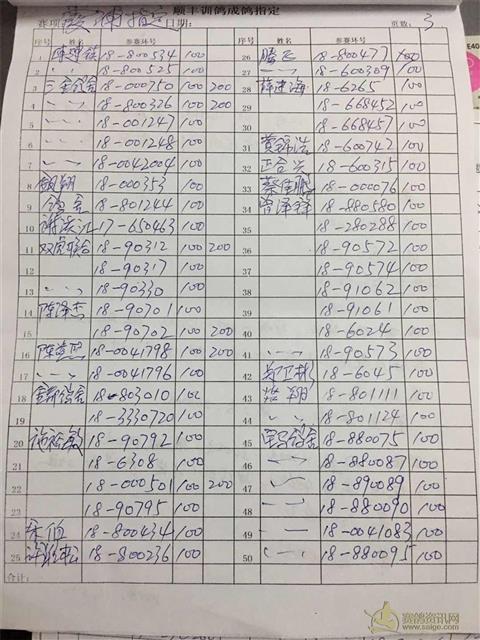 赛项 指定 顺丰训鸽成鸽指定
日期: 页数: 3
序号 姓名 参赛环号 序号 姓名 参赛环号
1 18-800534 100 26 腾飞 18-800477 100
2 18-800525 100 27 18-600309 100
3 18-000750 100 200 28 薛建海 18-6265 100
4 18-800326 100 200 29 18-668452 100
5 18-001247 100 30 18-668457 100
6 18-001248 100 31 黄锦浩 18-600742 100
7 18-0042004 100 32 正合兴 18-600315 100
8 翱翔 18-000353 100 33 蔡佳鹏 18-000076 100
9 18-801244 100 34 曾泽锋 18-880580 100
10 17-650463 100 35 18-280288 100
11 双虎联合 18-90312 100 200 36 18-90572 100
12 18-90317 100 37 18-90574 100
13 18-90330 100 38 18-91062 100
14 陈泽杰 18-90701 100 39 18-91061 100
15 18-90702 100 200 40 18-6024 100
16 18-0041798 100 200 41 18-90573 100
17 18-0041796 100 42 18-6045 100
18 18-803010 100 43 18-801111 100
19 18-3330720 100 44 18-801124 100
20 18-90792 100 45 18-880075 100
21 18-6308 100 46 18-880087 100
22 18-000501 100 200 47 18-890089 100
23 18-90795 100 48 18-880090 100
24 18-800434 100 49 18-0041083 100
25 18-800236 100 50 18-880095 100
合计:
赛鸽资讯网
www.saige.com